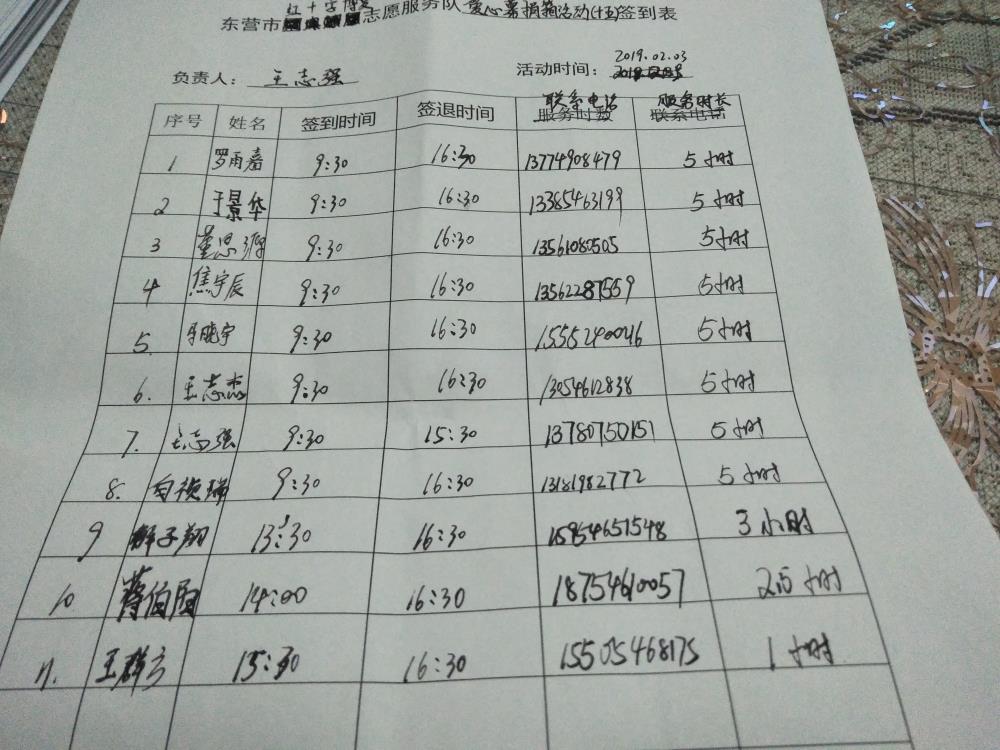 红十字博爱
东营市志愿服务队爱心募捐箱活动(十五)签到表
2019.02.03
负责人: 王志强 活动时间:
联系电话 服务时长
序号 姓名 签到时间 签退时间 服务时数 联系电话
1 罗雨嘉 9:30 16:30 13774908479 5小时
2 于景华 9:30 16:30 13385463199 5小时
3 董思源 9:30 16:30 13561080505 5小时
4 焦宇辰 9:30 16:30 13562287559 5小时
5. 马晓宇 9:30 16:30 15552400046 5小时
6. 王志杰 9:30 16:30 13054612838 5小时
7. 王志强 9:30 15:30 13780750151 5小时
8. 白祯瑞 9:30 16:30 13181982772 5小时
9 子翔 13:30 16:30 15954651548 3小时
10 蒋伯 14:00 16:30 18754610057 2.5小时
11. 王群方 15:30 16:30 15505468175 1小时